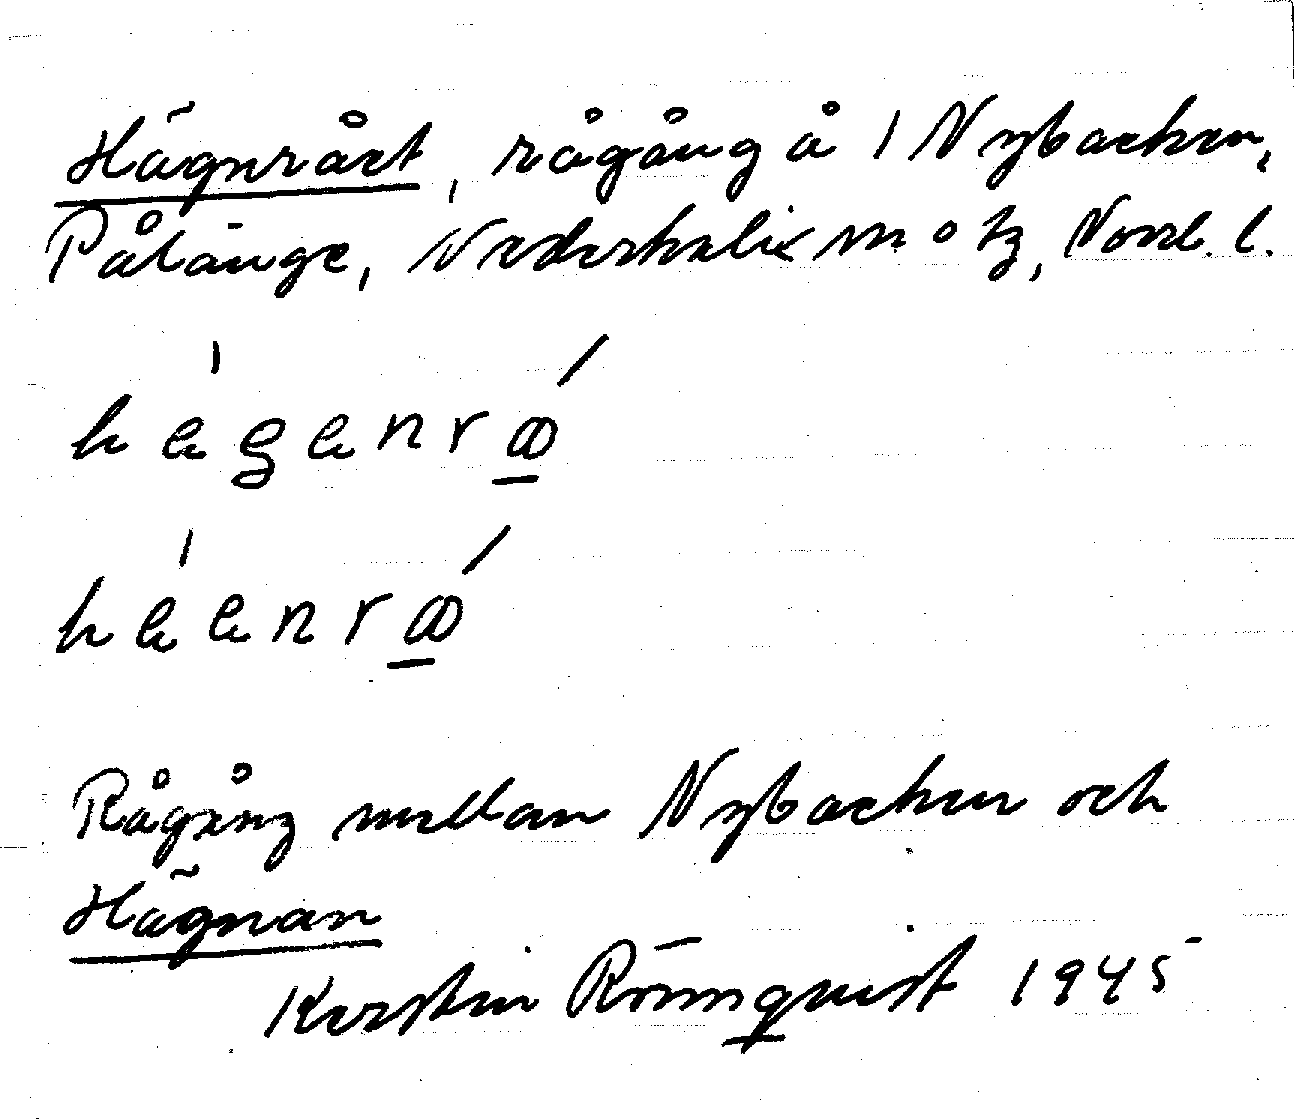 Hägnrået, rågång å 1 Nybacken,
Pålänge, Nederkalix m o tg, Norrb. l.
Rågång mellan Nybacken och
Hägnan
Kerstin Rönnquist 1945